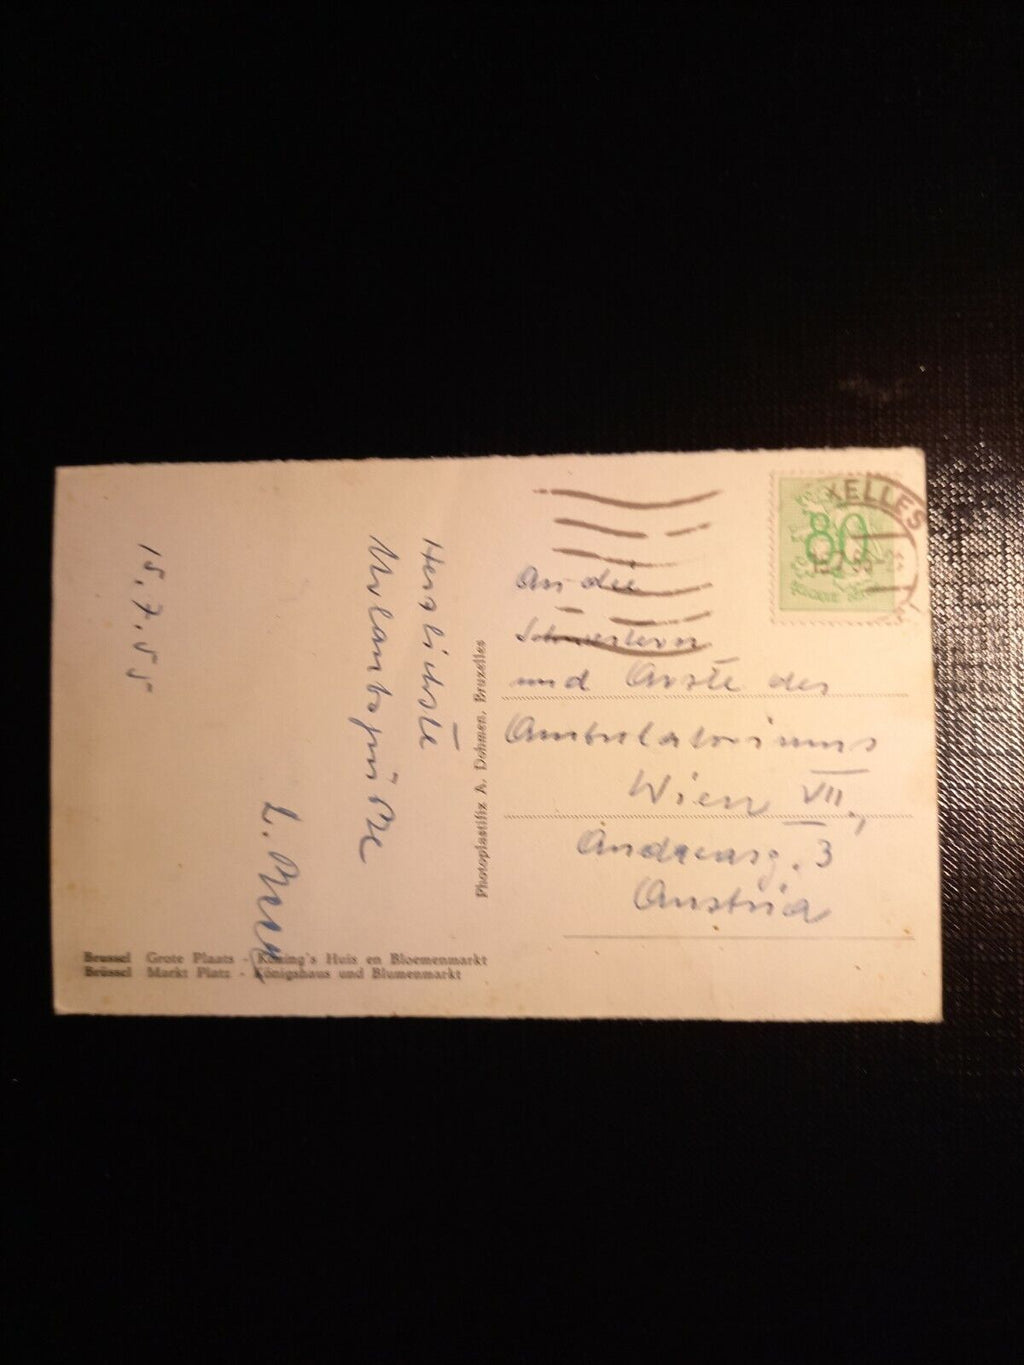 15.7.55
Herzlichste
Urlaubsgrüße
L.
Photoplastifix A. Dohmen, Bruxelles
Brussel Grote Plaats - Koning's Huis en Bloemenmarkt
Brüssel Markt Platz - Königshaus und Blumenmarkt
XELLES
80
An die
Schwestern
und Ärzte des
Ambulatoriums
Wien VII,
Andreasg. 3
Austria